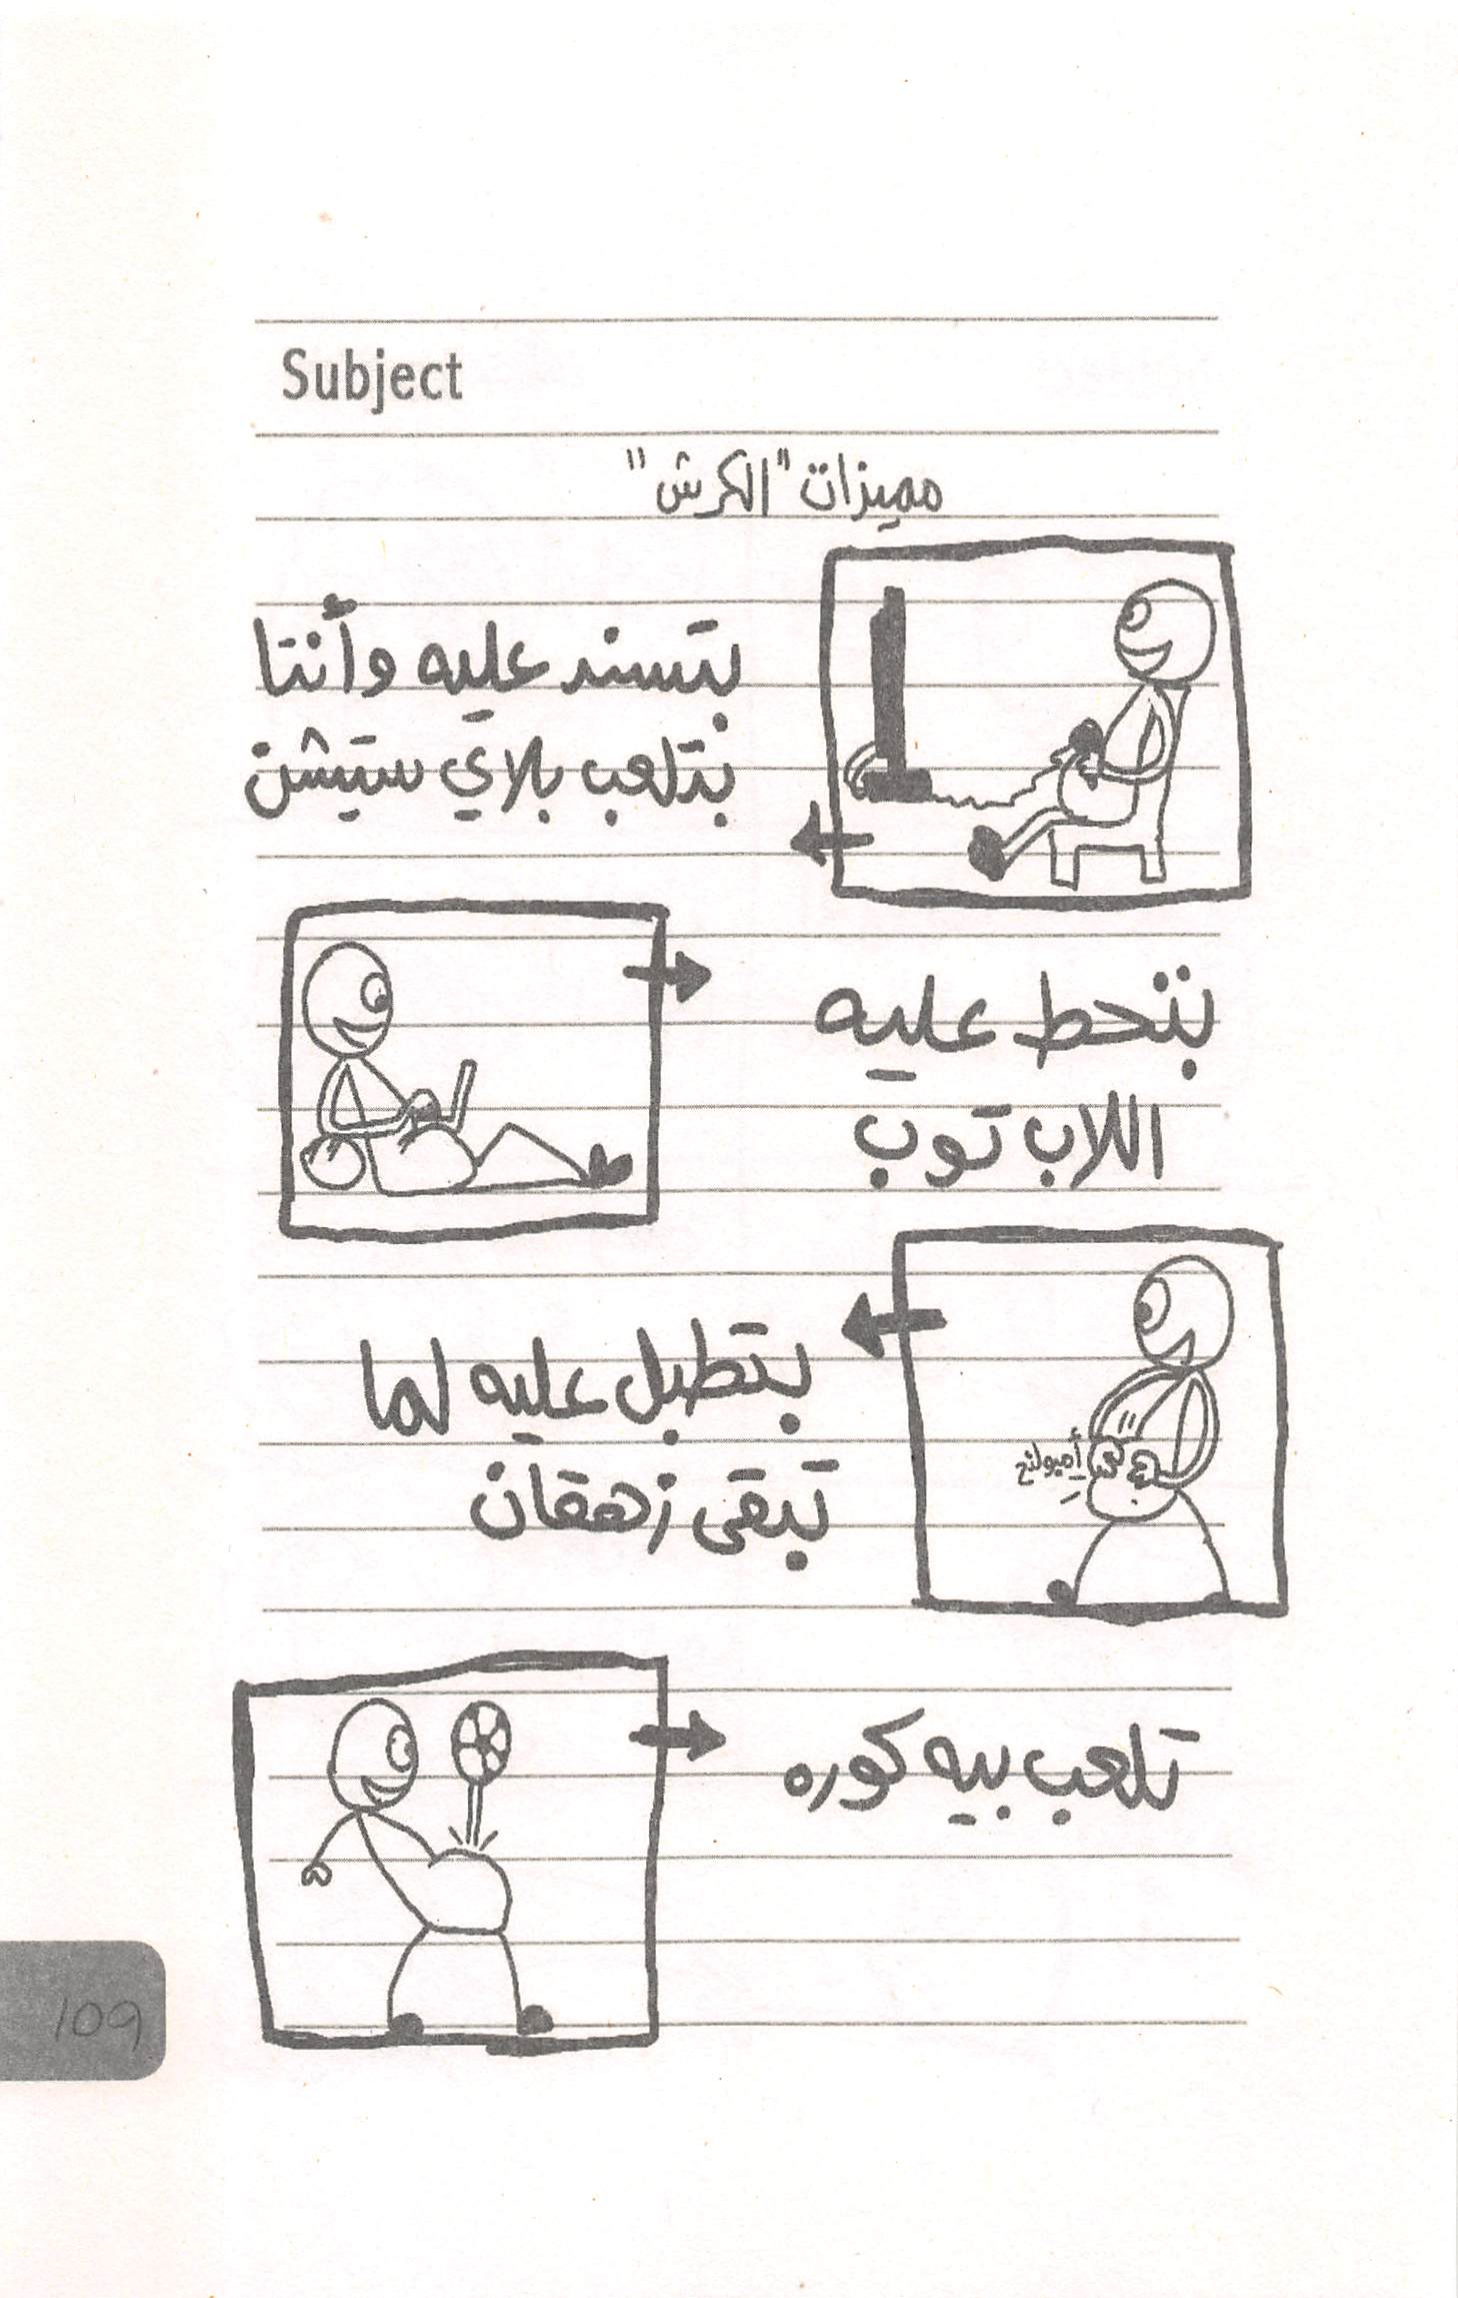 Subject
مميزات "الكرش"
بتسند عليه وأنتا
بتلعب بلاي ستيشن
بتحط عليه
اللاب توب
بتطبل عليه لما
تبقى زهقان
تلعب بيه كوره
109